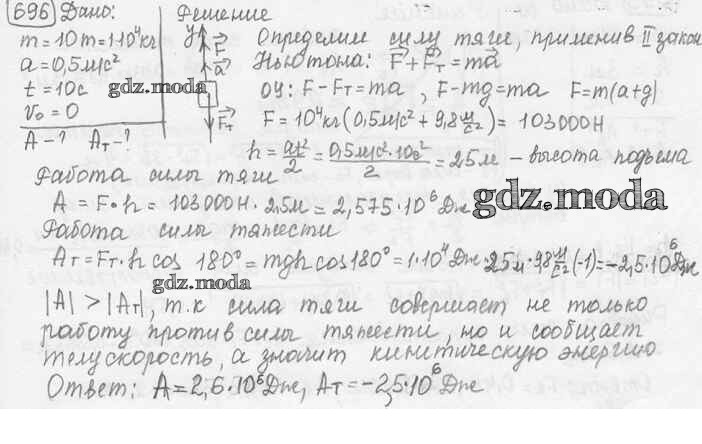 696 Дано: Решение
m=10т=1·10⁴кг
a=0,5м/с²
t=10с
v₀=0
A-? Aт-?
y F a Fт
gdz.moda
Определим силу тяги, применив II закон
Ньютона: F+Fт=ma
oy: F-Fт=ma, F-mg=ma F=m(a+g)
F=10⁴кг(0,5м/с²+9,8м/с²)=103000Н
h=at²/2=0,5м/с²·10с²/2=25м - высота подъема
Работа силы тяги
A=F·h=103000Н·25м=2,575·10⁶Дж
gdz.moda
Работа силы тяжести
Aт=Fт·h cos 180°=mgh cos180°=1·10⁴Дж·25м·9,8м/с²(-1)=-2,5·10⁶Дж
gdz.moda
|A|>|Aт|, т.к сила тяги совершает не только
работу против силы тяжести, но и сообщает
телу скорость, а значит кинитическую энергию
Ответ: A=2,6·10⁶Дж, Aт=-2,5·10⁶Дж